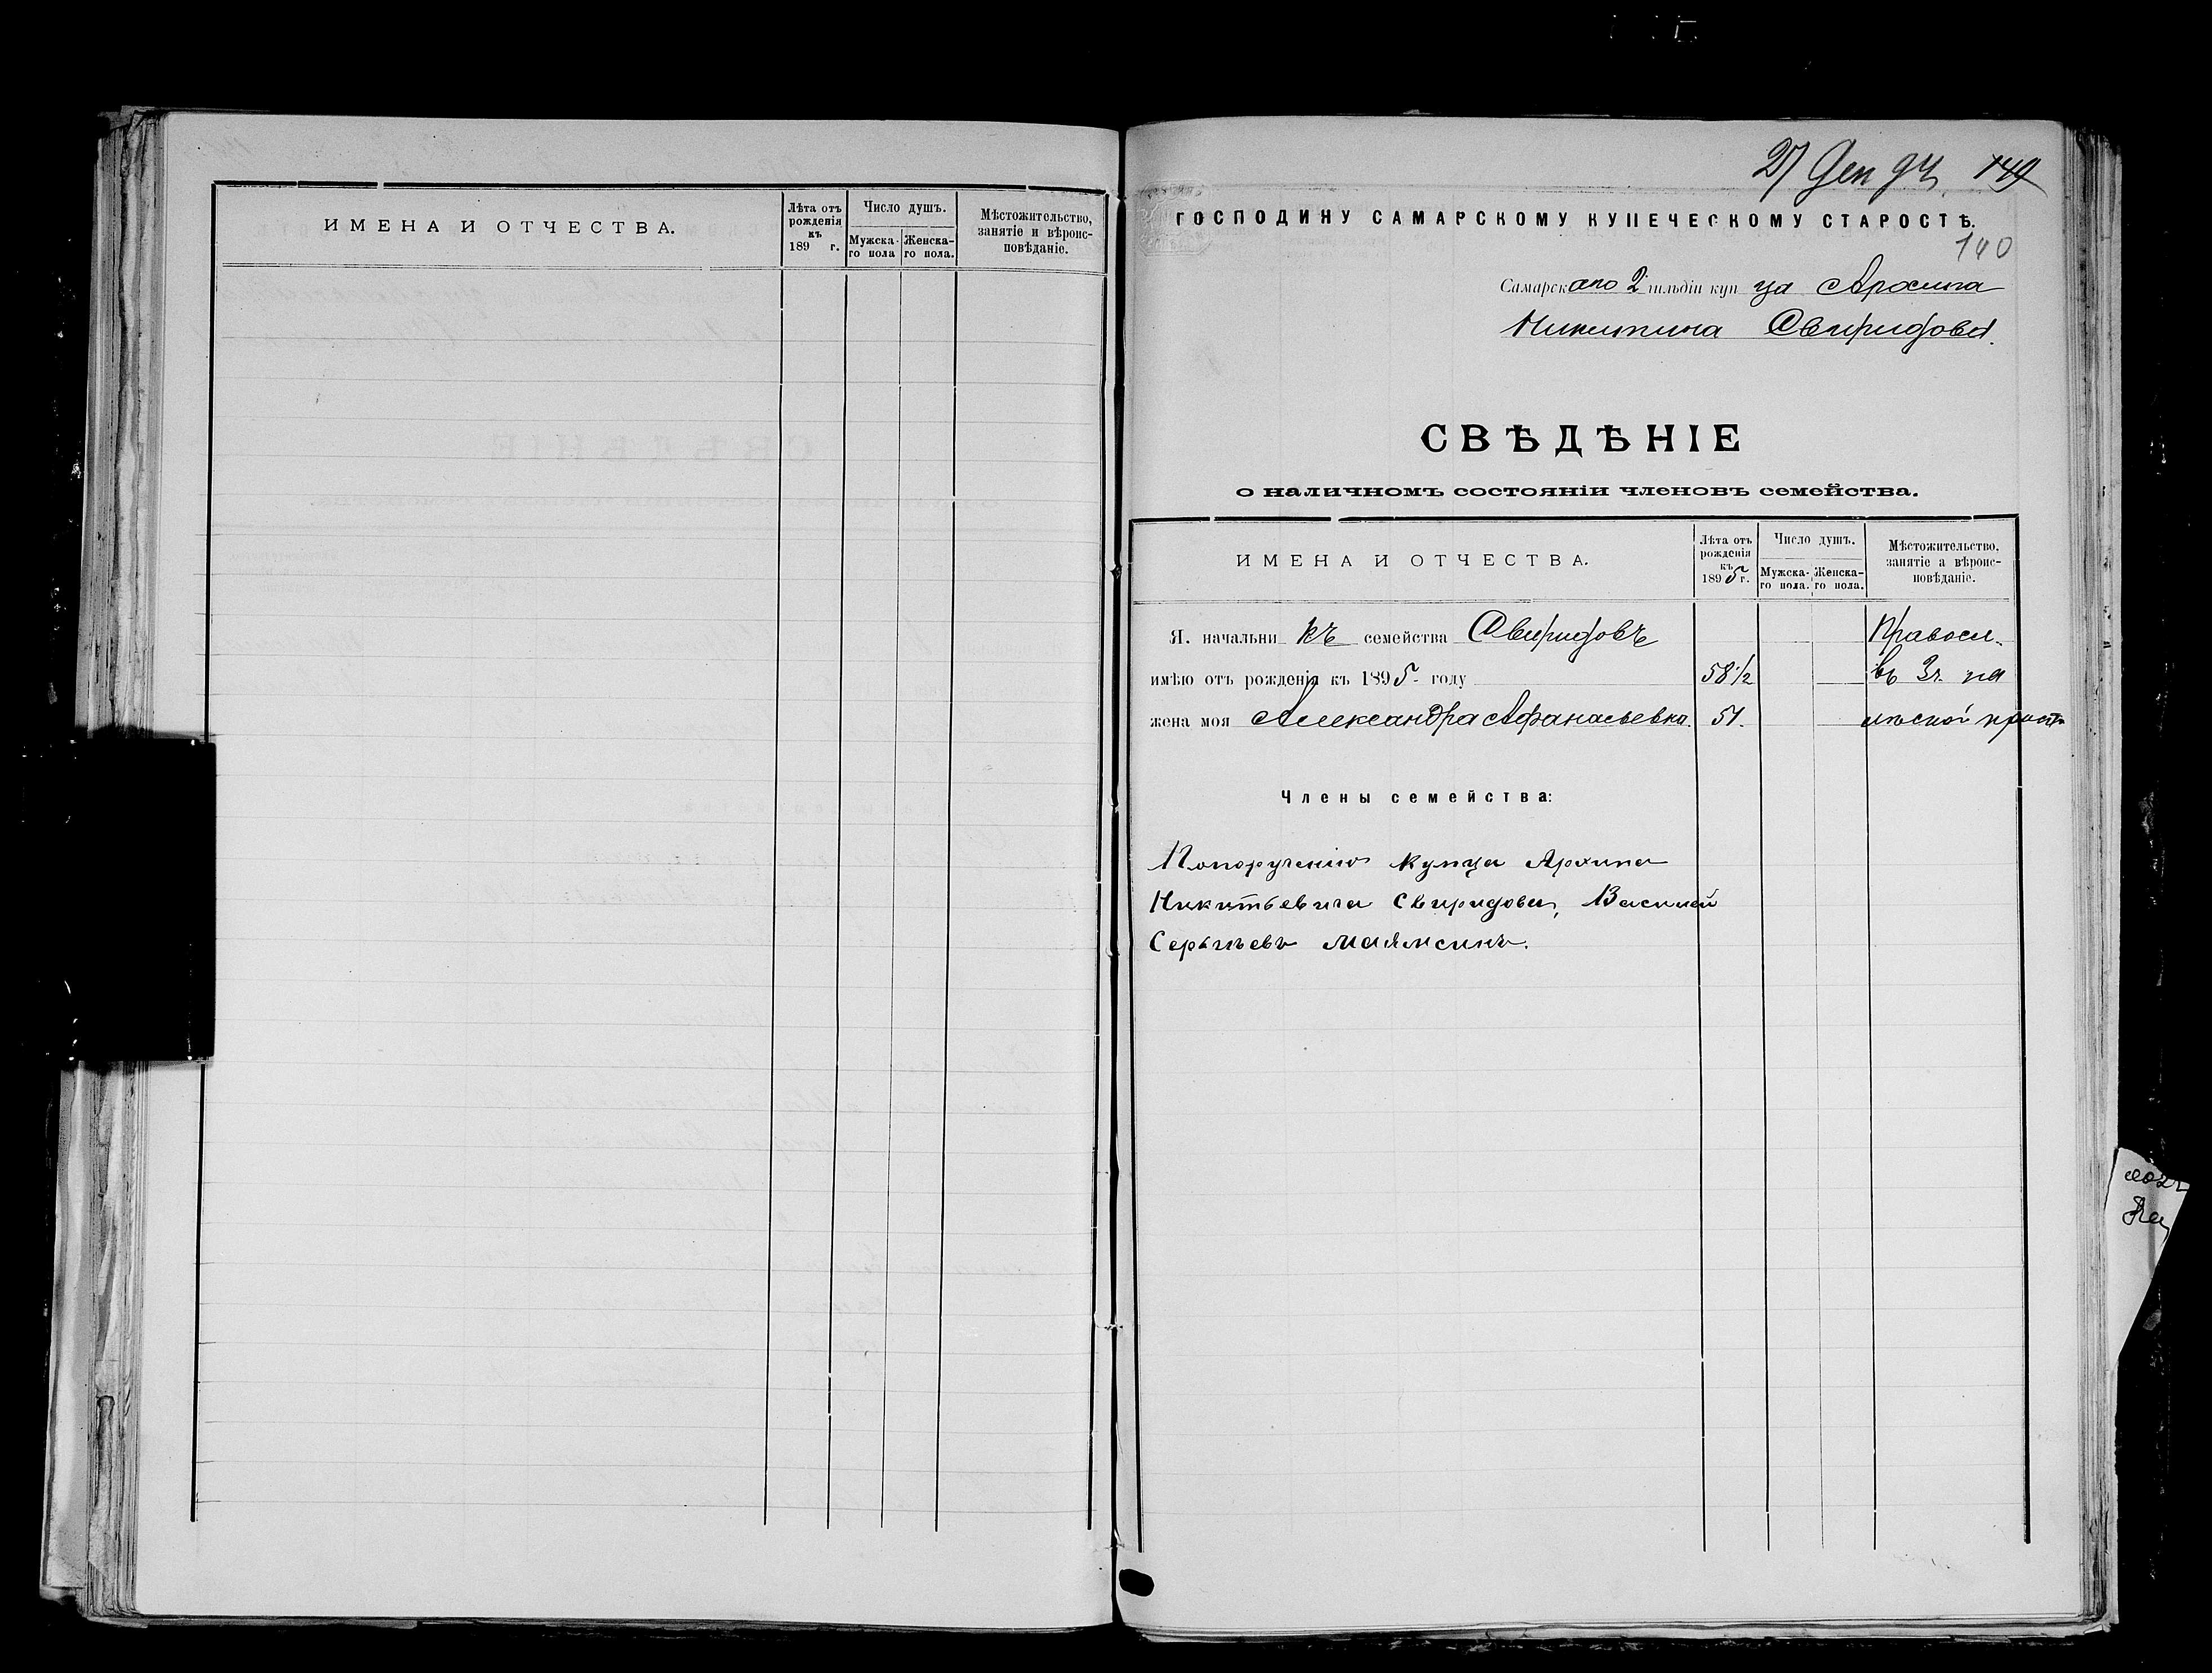 ИМЕНА И ОТЧЕСТВА.
Лѣта отъ рожденія къ 189 г.
Число душъ.
Мужска-го пола
Женска-го пола.
Мѣстожительство, занятіе и вѣроис-повѣданіе.
27 Дек 94 149
ГОСПОДИНУ САМАРСКОМУ КУПЕЧЕСКОМУ СТАРОСТѢ.
140
Самарскаго 2 гильдіи купца Архипа
Никитина Свиридова.
СВѢДѢНІЕ
о наличномъ состояніи членовъ семейства.
ИМЕНА И ОТЧЕСТВА.
Лѣта отъ рожденія къ 1895 г.
Число душъ.
Мужска-го пола.
Женска-го пола.
Мѣстожительство, занятіе а вѣроис-повѣданіе.
Я. начальникъ семейства Свиридовъ Правосл.
имѣю отъ рожденія къ 1895 году 58 1/2 въ 3й ча
жена моя Александра Афанасьевна. 51.
Члены семейства:
Попорученію купца Архипа
Никитьевича Свиридова, Василий
Сергѣевъ